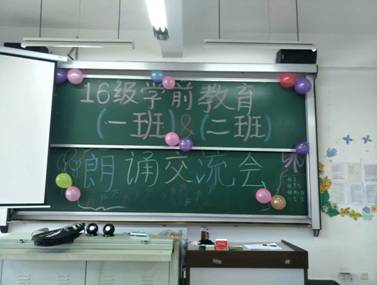 16级学前教育
(一班)&(二班)
朗诵交流会